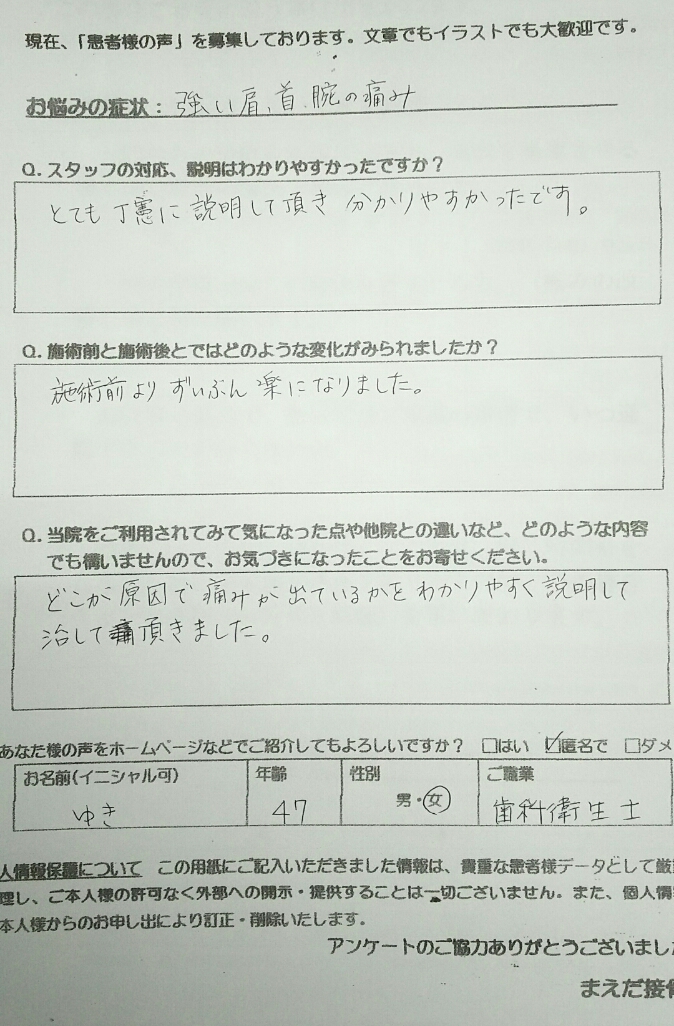 現在、「患者様の声」を募集しております。文章でもイラストでも大歓迎です。
お悩みの症状：強い肩、首、腕の痛み
Q. スタッフの対応、説明はわかりやすかったですか？
とても丁寧に説明して頂き 分かりやすかったです。
Q. 施術前と施術後とではどのような変化がみられましたか？
施術前より ずいぶん 楽になりました。
Q. 当院をご利用されてみて気になった点や他院との違いなど、どのような内容
でも構いませんので、お気づきになったことをお寄せください。
どこが原因で痛みが出ているかをわかりやすく説明して
治して頂きました。
あなた様の声をホームページなどでご紹介してもよろしいですか？ □はい ☑匿名で □ダメ
お名前（イニシャル可） 年齢 性別 ご職業
ゆき 47 男・女 歯科衛生士
人情報保護について この用紙にご記入いただきました情報は、貴重な患者様データとして厳
理し、ご本人様の許可なく外部への開示・提供することは一切ございません。また、個人情
本人様からのお申し出により訂正・削除いたします。
アンケートのご協力ありがとうございました
まえだ接骨